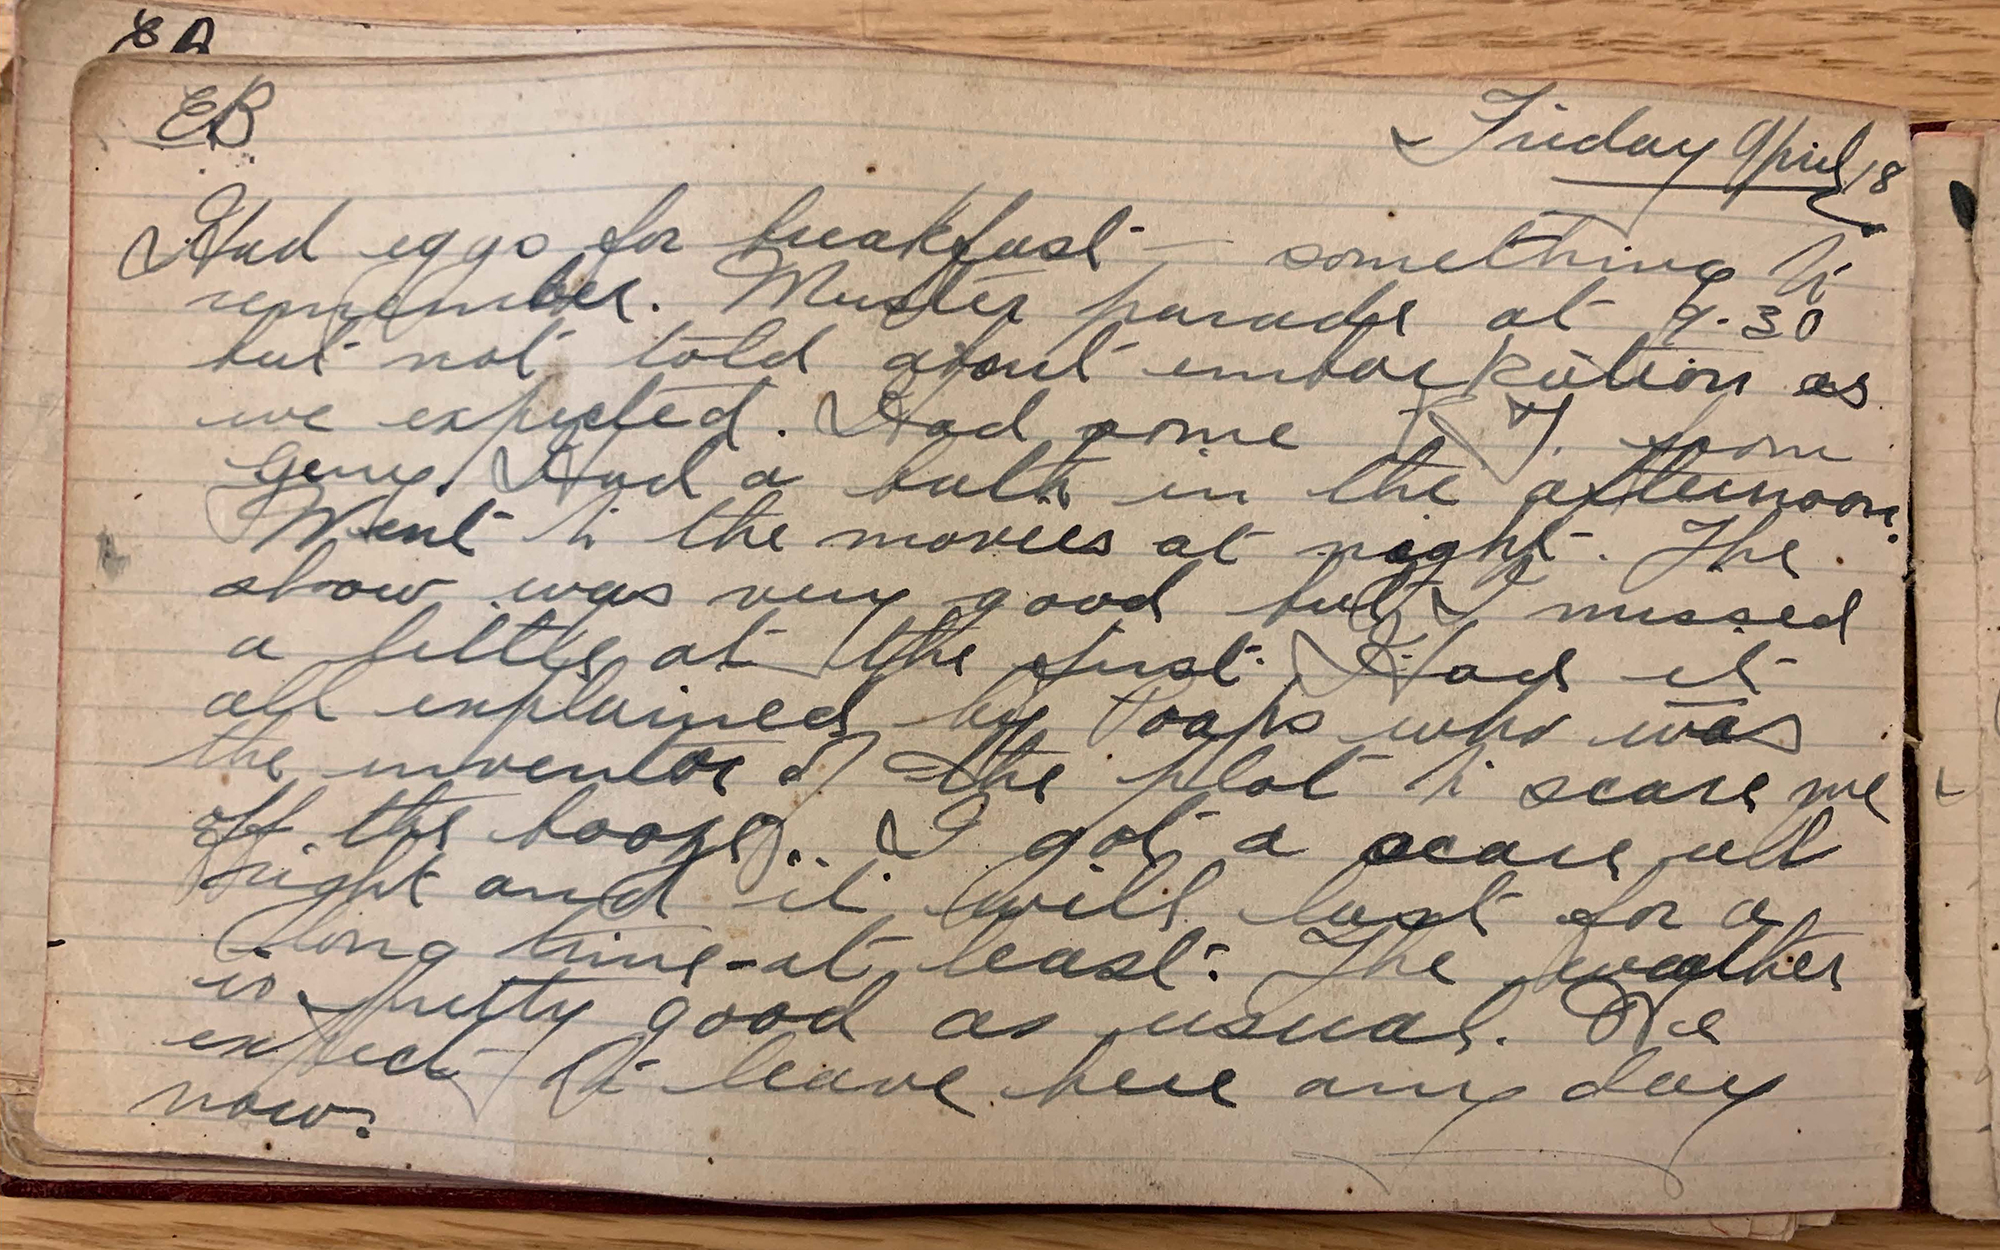 EB
Friday April 18
Had eggs for breakfast - something to
remember. Muster parade at 9.30
but not told about embarkation as
we expected. Had some from
Gerry. Had a bath in the afternoon.
Went to the movies at night. The
show was very good but I missed
a little at the first. Had it
all explained by Poaps who was
the inventor of the plot to scare me
off the booze. I got a scare all
right and it will last for a
long time - at least. The weather
is pretty good as usual. We
expect to leave here any day
now.